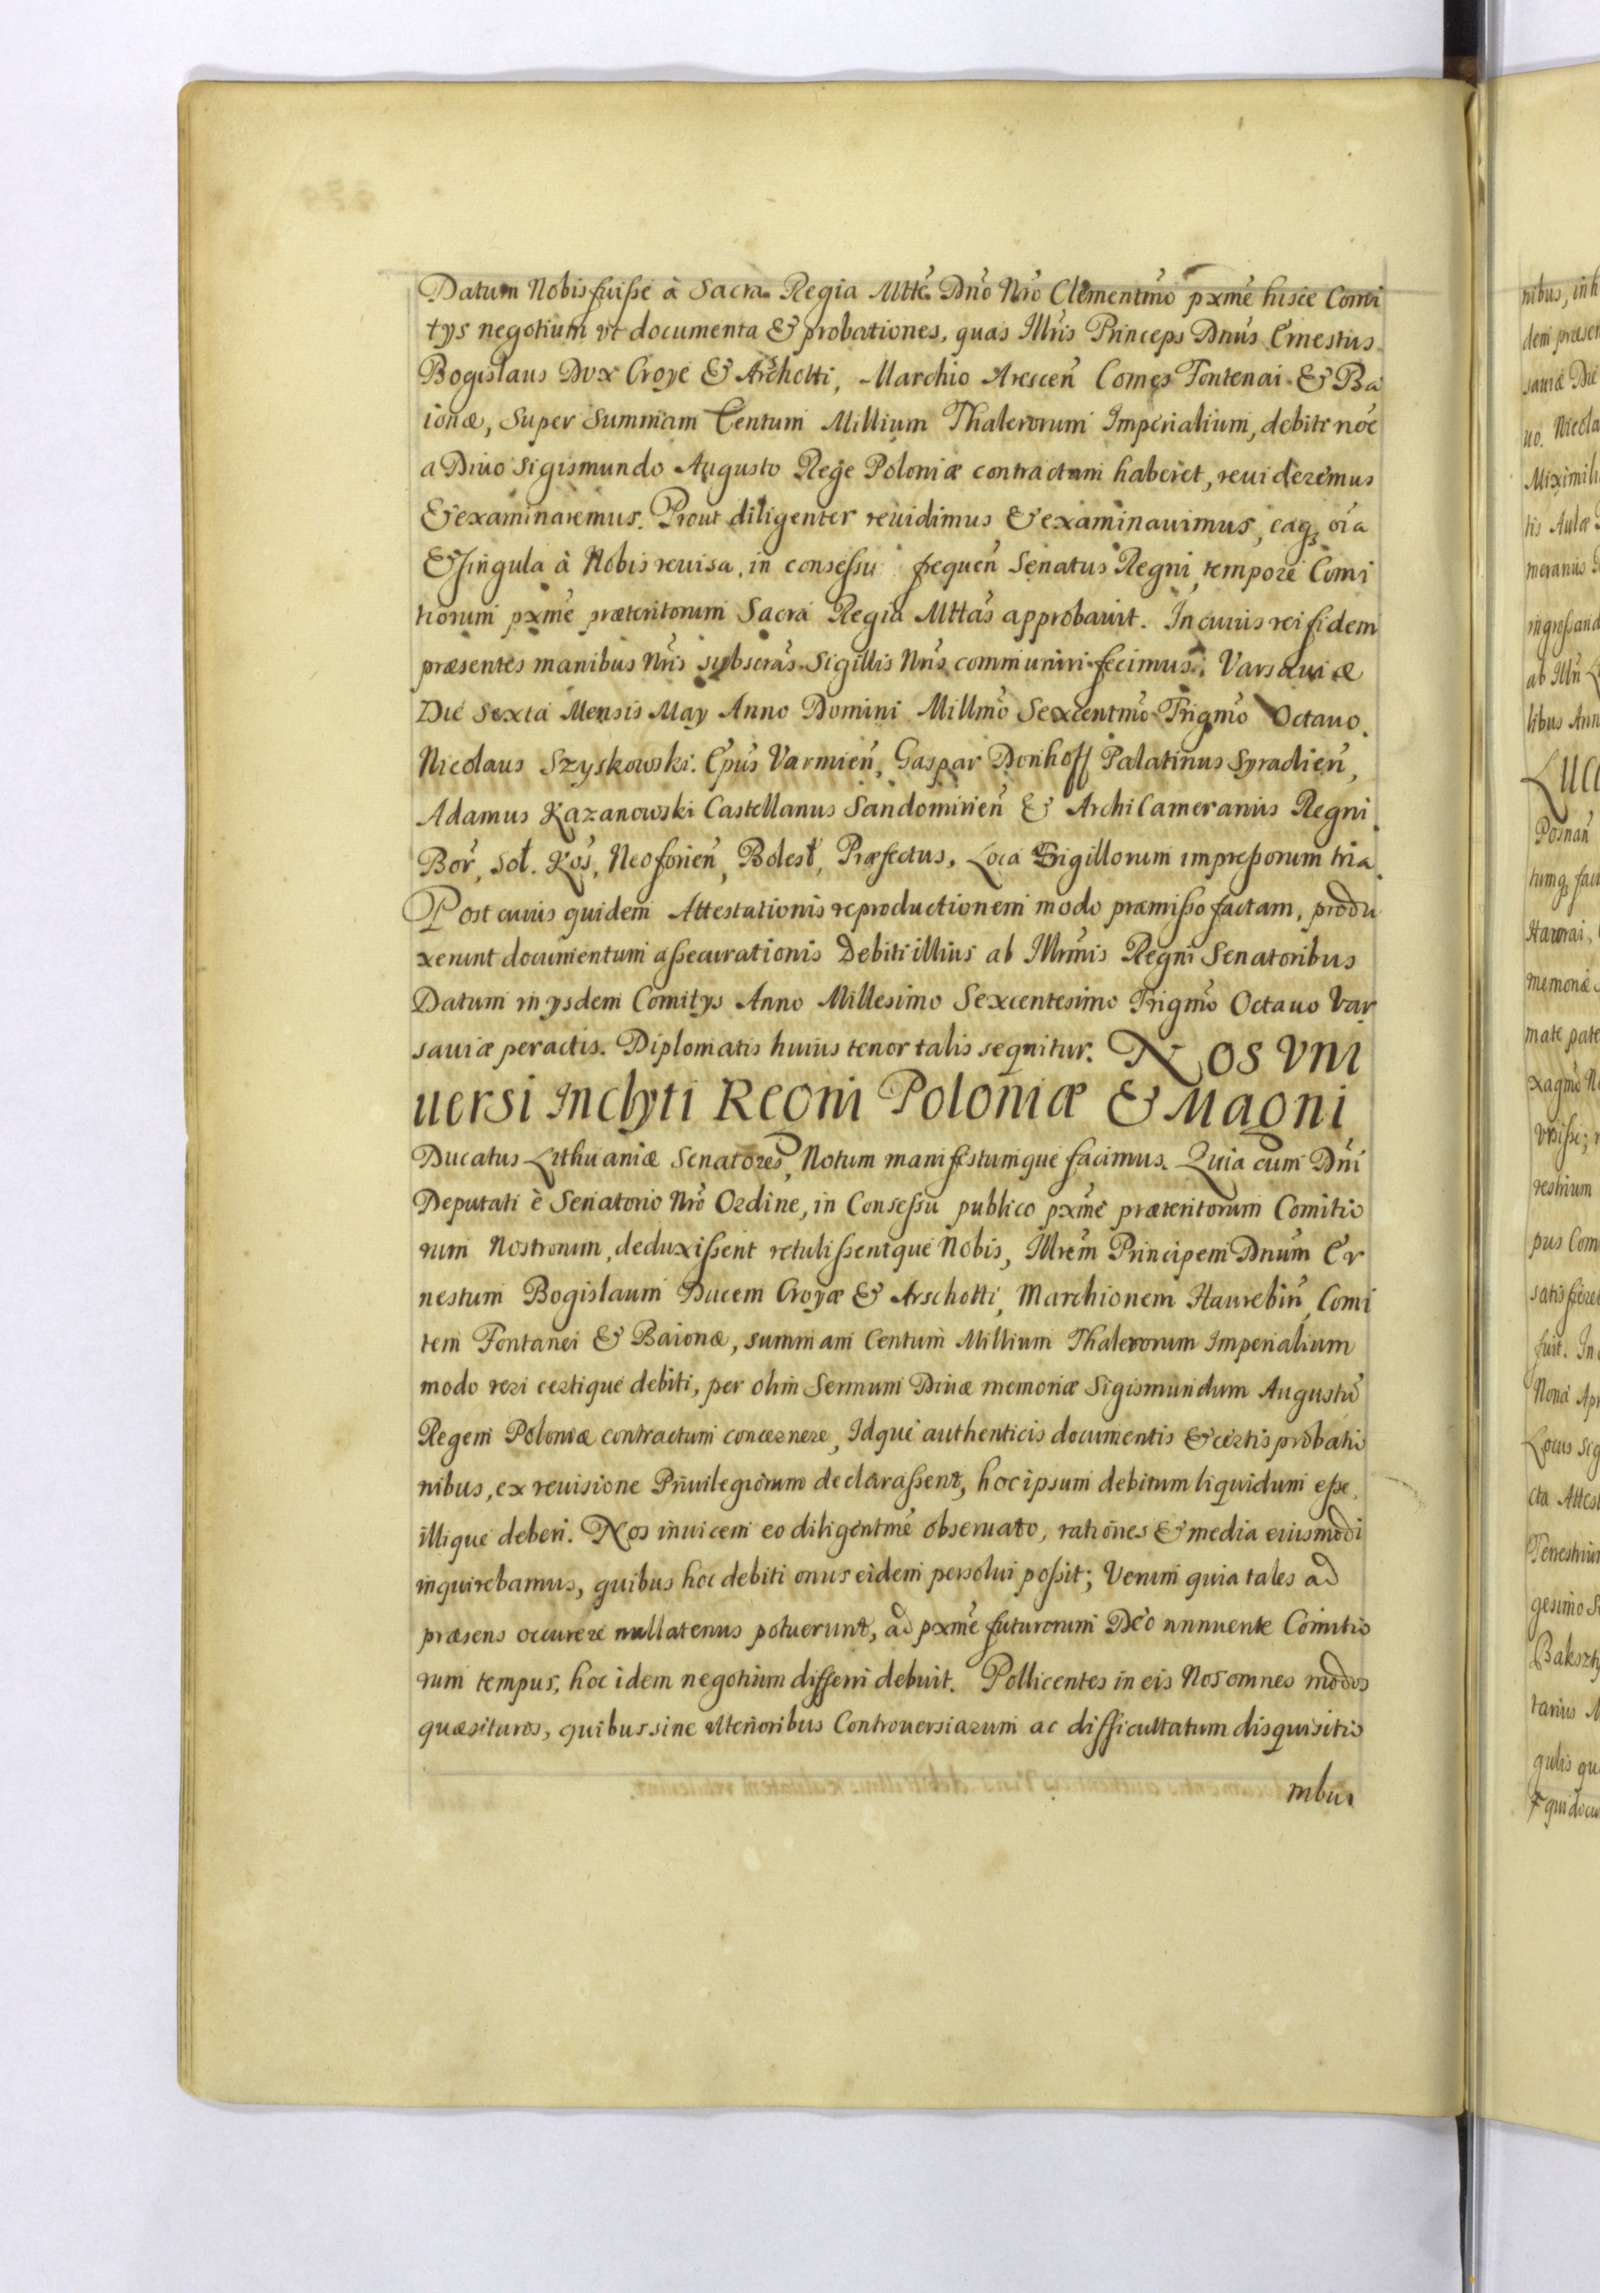 Datum Nobis fuisse à Sacra Regia Mtte Dno Nro Clementmo pxme hisce Comi
tys negotium vt documenta & probationes, quas Illris Princeps Dnus Ernestus
Bogislaus Dux Croye & Arschotti, Marchio Arescen Comes Fontenai & Ba
ionæ, Super Summam Centum Millium Thalerorum Imperialium, debiti noe
a Diuo Sigismundo Augusto Rege Poloniæ contractam haberet, reuideremus
& examinaremus. Prout diligenter reuidimus & examinauimus, eaq3 oia
& singula à Nobis reuisa, in consessu frequen Senatus Regni, tempore Comi
tiorum pxme præteritorum Sacra Regia Mttas approbauit. In cuius rei fidem
præsentes manibus Nris subscras Sigillis Nris communiri fecimus. Varsauiæ
Die Sexta Mensis May Anno Domini Millmo Sexcentmo Trigmo Octauo.
Nicolaus Szyskowski. Epus Varmien, Gaspar Donhoff Palatinus Syradien,
Adamus Kazanowski Castellanus Sandomirien & Archi Camerarius Regni.
Bor, Sol. Kos, Neoforien, Bolest, Præfectus, Loca Sigillorum impressorum tria.
Post cuius quidem Attestationis reproductionem modo præmisso factam, produ
xerunt documentum assecurationis Debiti illius ab Illrmis Regni Senatoribus
Datum in ysdem Comitys Anno Millesimo Sexcentesimo Trigmo Octauo Var
sauiæ peractis. Diplomatis huius tenor talis sequitur. Nos Vni
uersi Inclyti Regni Poloniæ & Magni
Ducatus Lithuaniæ Senatores, Notum manifestumque facimus. Quia cum Dni
Deputati è Senatorio Nro Ordine, in Consessu publico pxme præteritorum Comitio
rum Nostrorum, deduxissent retulissentque Nobis, Illrem Principem Dnum Er
nestum Bogislaum Ducem Croyæ & Arschotti, Marchionem Haurebin, Comi
tem Fontanei & Baionæ, summam Centum Millium Thalerorum Imperialium
modo veri certique debiti, per olim Sermum Diuæ memoriæ Sigismundum Augustu
Regem Poloniæ contractum concernere, Idque authenticis documentis & certis probatio
nibus, ex reuisione Priuilegiorum declarassent, hoc ipsum debitum liquidum esse,
illique deberi. Nos inuicem eo diligentme obseruato, rationes & media eiusmodi
inquirebamus, quibus hoc debiti onus eidem persolui possit; Verum quia tales ad
præsens occurere nullatenus potuerunt, ad pxme futurorum Deo annuente Comitio
rum tempus, hoc idem negotium differri debuit. Pollicentes in eis Nos omnes modos
quæsituros, quibus sine vlterioribus Controuersiarum ac difficultatum disquisitio
nibus